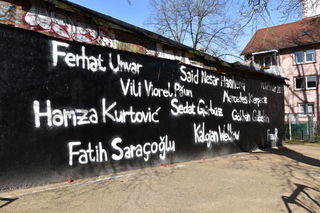 Ferhat Unvar
Said Nesar Hashemi
Vili Viorel Păun
Mercedes Kierpacz
Hamza Kurtović
Sedat Gürbüz
Gökhan Gültekin
Kaloyan Velkov
Fatih Saraçoğlu